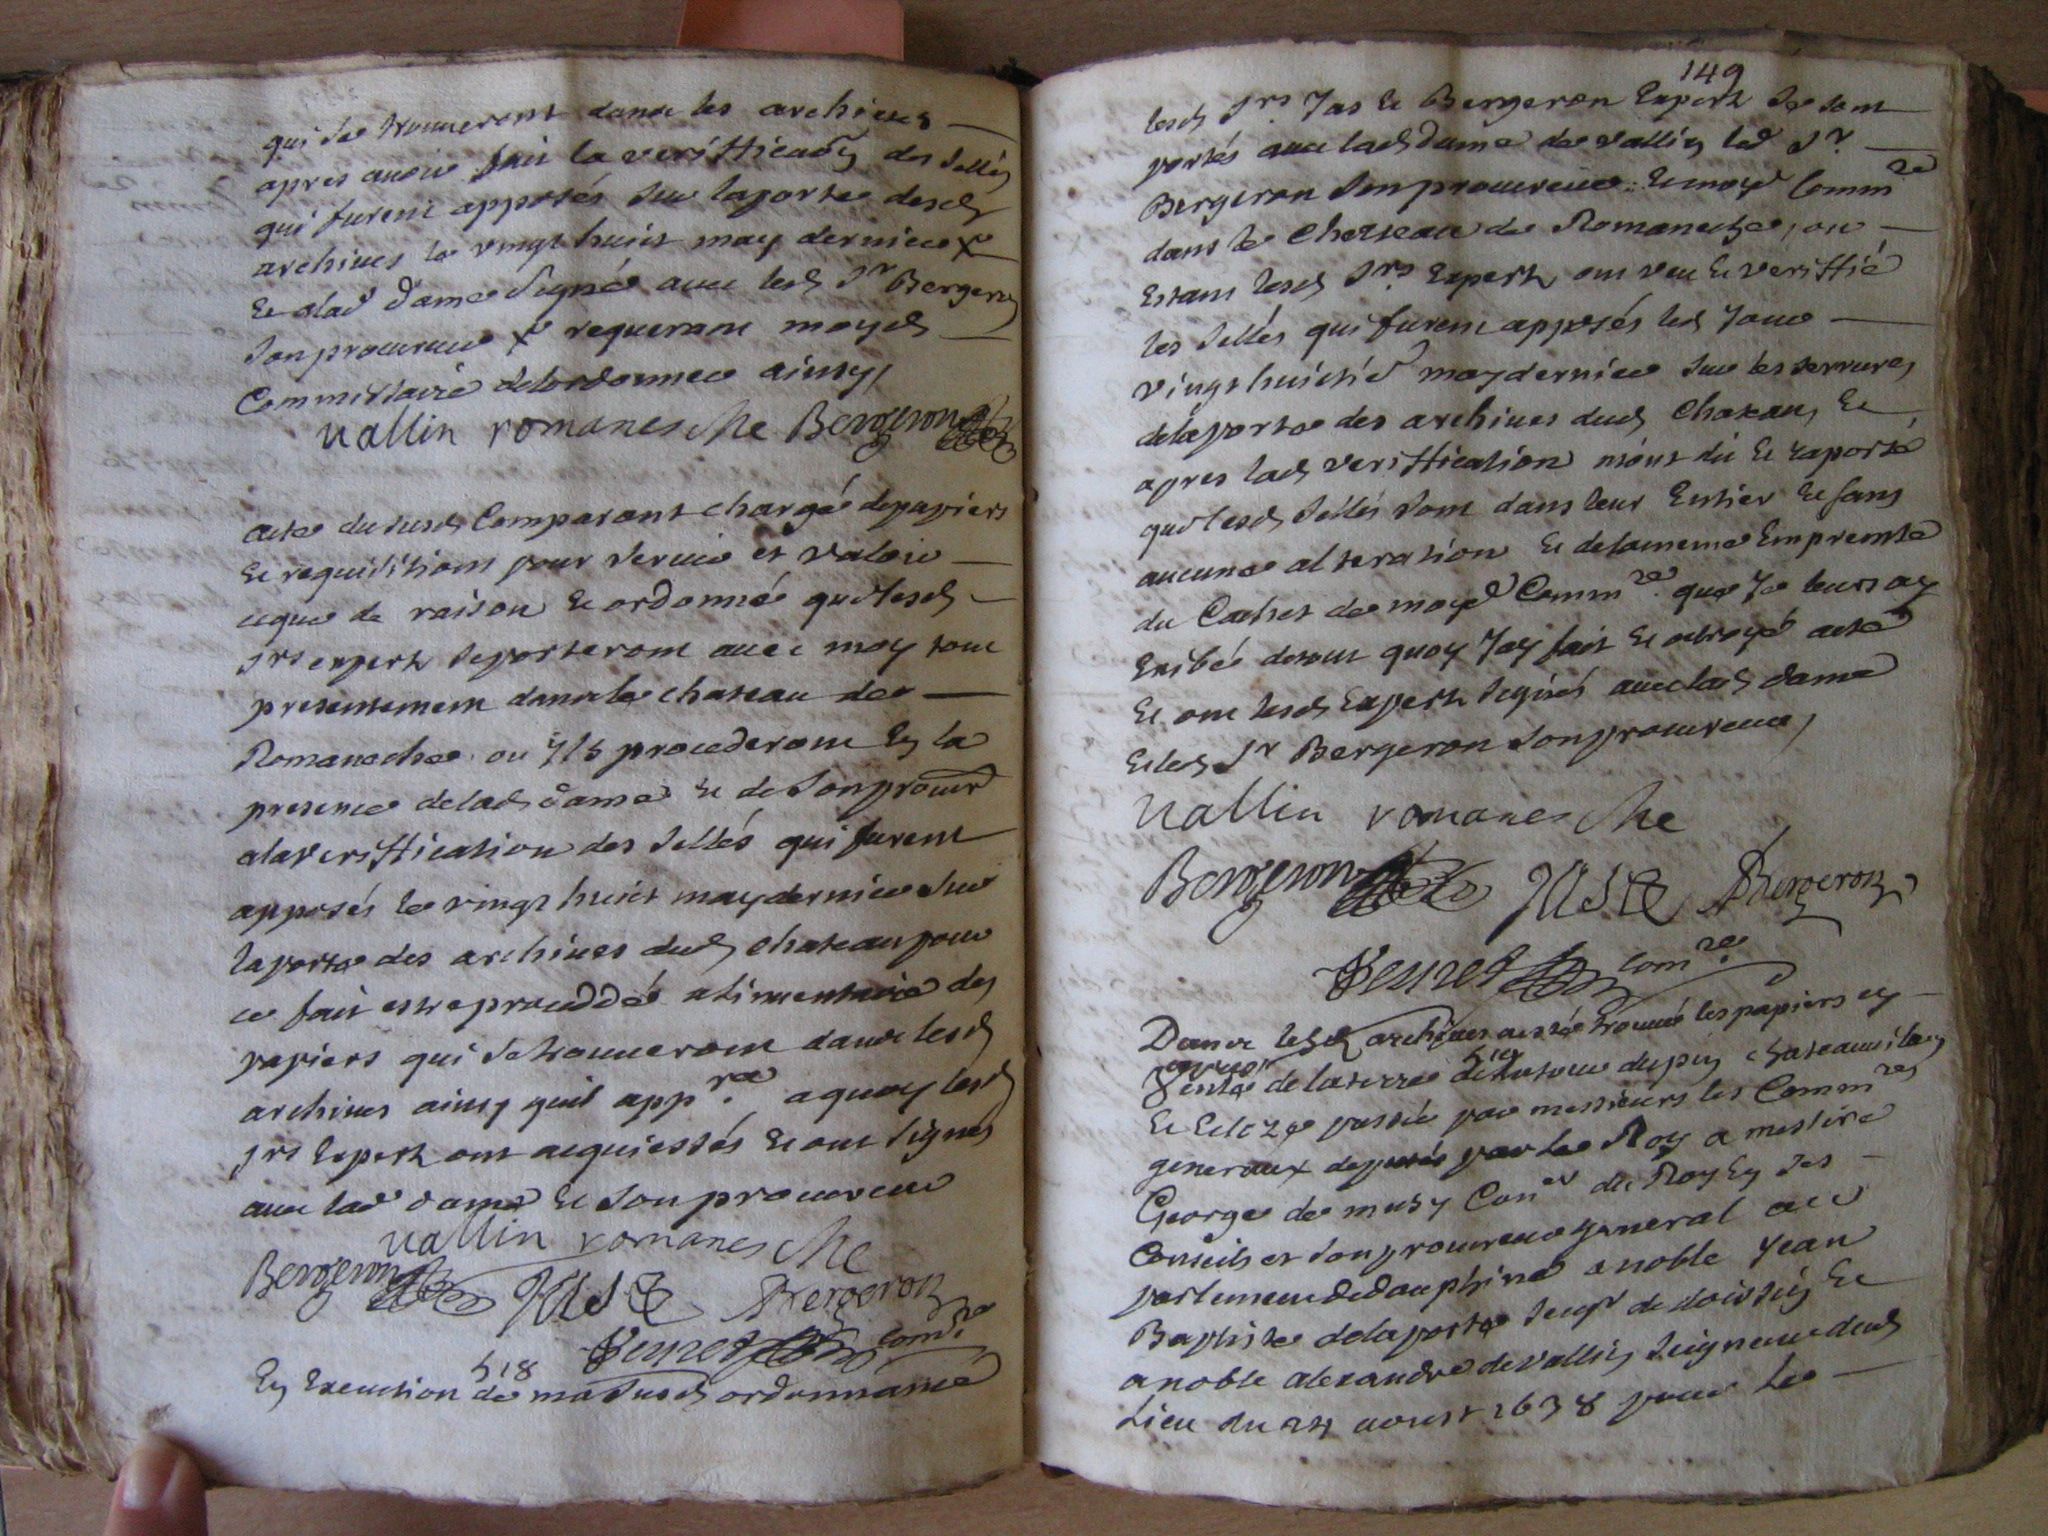 qui se trouveront dans les archives
apres avoir fait la veriffica͠on des sellés
qui furent apposés sur la porte desd
archives le vingt huict may dernier x
Et a lad dame signé avec led Sr Bergeron
son procureur x requerant moyd
Commissaire de lordonner ainsy
vallin romanesche Bergeron
acte du susd Comparant chargé de papiers
Et requisitions pour servir et valoir
ceque de raison Et ordonné que lesd
srs expertz se porteront avec moy tout
presentement dans le chateau de
Romaneche ou ils procederont En la
presence de lad dame Et de son procur
a la veriffication des sellés qui furent
apposés le vingt huict may dernier sur
la porte des archives dud chateau pour
ce fait estre proceddé a linventaire des
papiers qui se trouveront dans lesd
archives ainsy quil app.ra a quoy lesd
srs Expertz ont acquiessés Et ont signés
avec lad dame Et son procureur
vallin romanesche
Bergeron Bergeron
com.re
518
En Execution de ma susd ordonnance
149
lesd Srs Jas Et Bergeron Expertz se sont
portés avec lad dame de vallin led Sr.
Bergeron son procureur Et moyd Commre
dans le Chetteau de Romaneche, ou
Estans lesd Srs Expertz ont veu Et veriffié
les sellés qui furent apposés led Jour
vingt huictie may dernier sur les serrures
de la porte des archives dud Chateau, Et
apres lad veriffication m'ont dit Et raporté
que lesd sellés sont dans leur Entier Et sans
aucune alteration Et de la meme Empreinte
du Cachet de moyd Comm.re que Je leurs ay
Exibée de tout quoy Jay fait Et octroyé acte
Et ont lesd Expertz signés avec lad dame
Et led Sr Bergeron son procureur,
vallin romanesche
Bergeron Bergeron
com.re
Dans lesd archives a esté trouvé les papiers cy
apres
Vente de la terre de la tour du pin chateauvilain
Et passée par messieurs les Commres
generaux deputés par le Roy a messire
George de musy Coner du Roy En ses
Conseils et son procureur general au
parlement de dauphiné a noble Jean
Baptiste de la porte seigr de doissin Et
a noble alexandre de vallin seigneur dud
Lieu du 24 aoust 1638 pour le